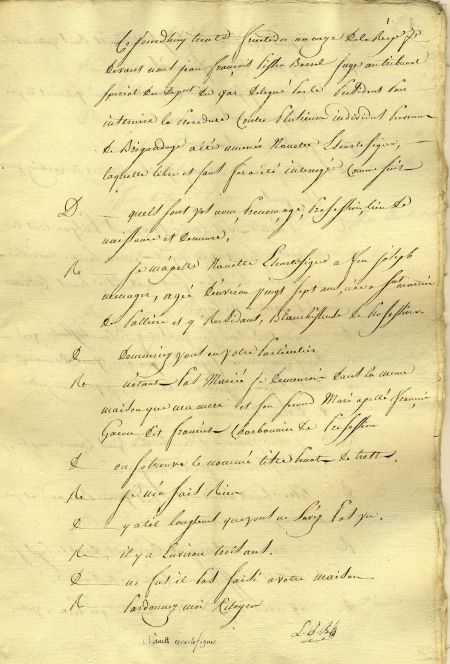 Ce jourdhuy trente fructidor an onze de la Rep. fse
devant nous jean françois Barral juge au tribunal
special du Dept du Var delegué par le President pour
instruire la procedure contre plusieurs individus prevenus
de Brigandage a été amenée Nanette
laquelle libre et sans fers a été interrogé comme suit
D — quels sont vos nom prenom, age, profession, lieu de
naissance et demeure,
R — je m'apelle Nanette a feu joseph
menager, agée d'environ vingt sept ans, née a St maximin
et y Residant, Blanchisseuse de profession.
D — Demeuriez vous en votre particulier
R — n'étant pas Mariée je Demeurois Dans la meme
maison que ma mere et son second Mari apellé françois
Gueou dit francois charbonnier de profession
D — ou se trouve le nommé de trets.
R — je n'en sait Rien
D — y a t'il longtems que vous ne l'avez pas vu.
R — il y a Environ trois ans.
D — ne fut il pas saisi a votre maison
R — Pardonnez moi Citoyen